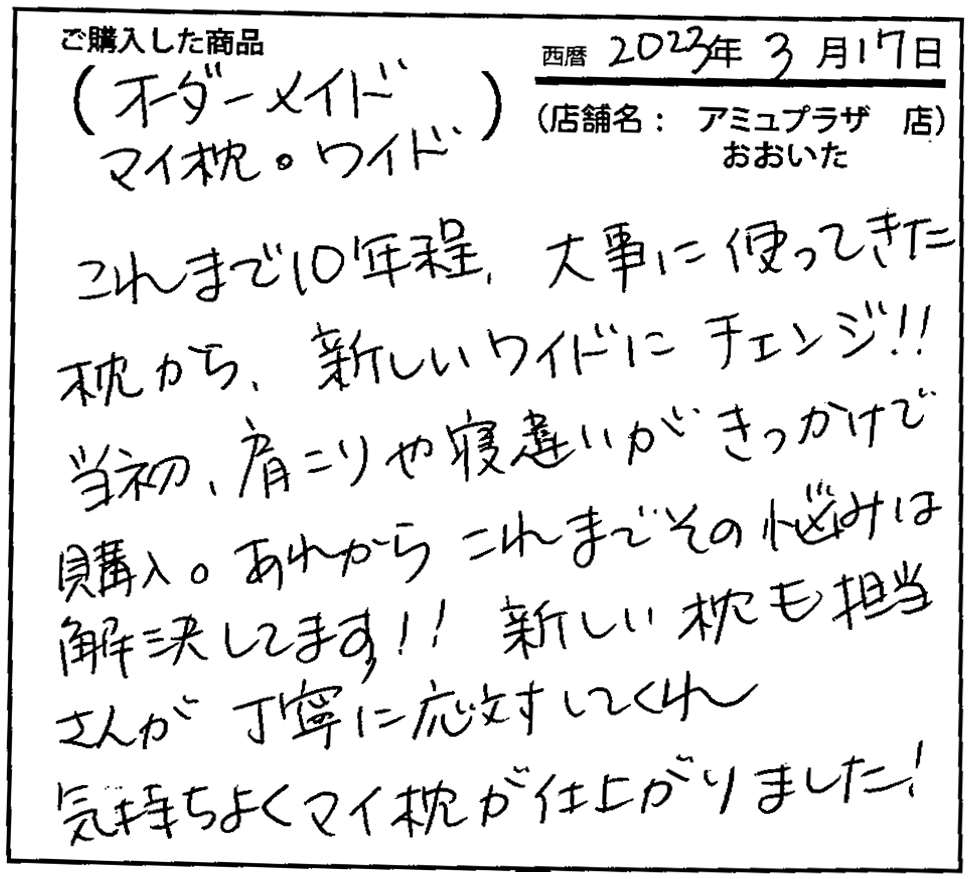 ご購入した商品
西暦 2023年 3月17日
(オーダーメイド
マイ枕。ワイド)
(店舗名： アミュプラザ 店)
おおいた
これまで10年程、大事に使ってきた
枕から、新しいワイドにチェンジ!!
当初、肩こりや寝違いがきっかけで
購入。あれからこれまでその悩みは
解決してます!! 新しい枕も担当
さんが丁寧に応対してくれ
気持ちよくマイ枕が仕上がりました!